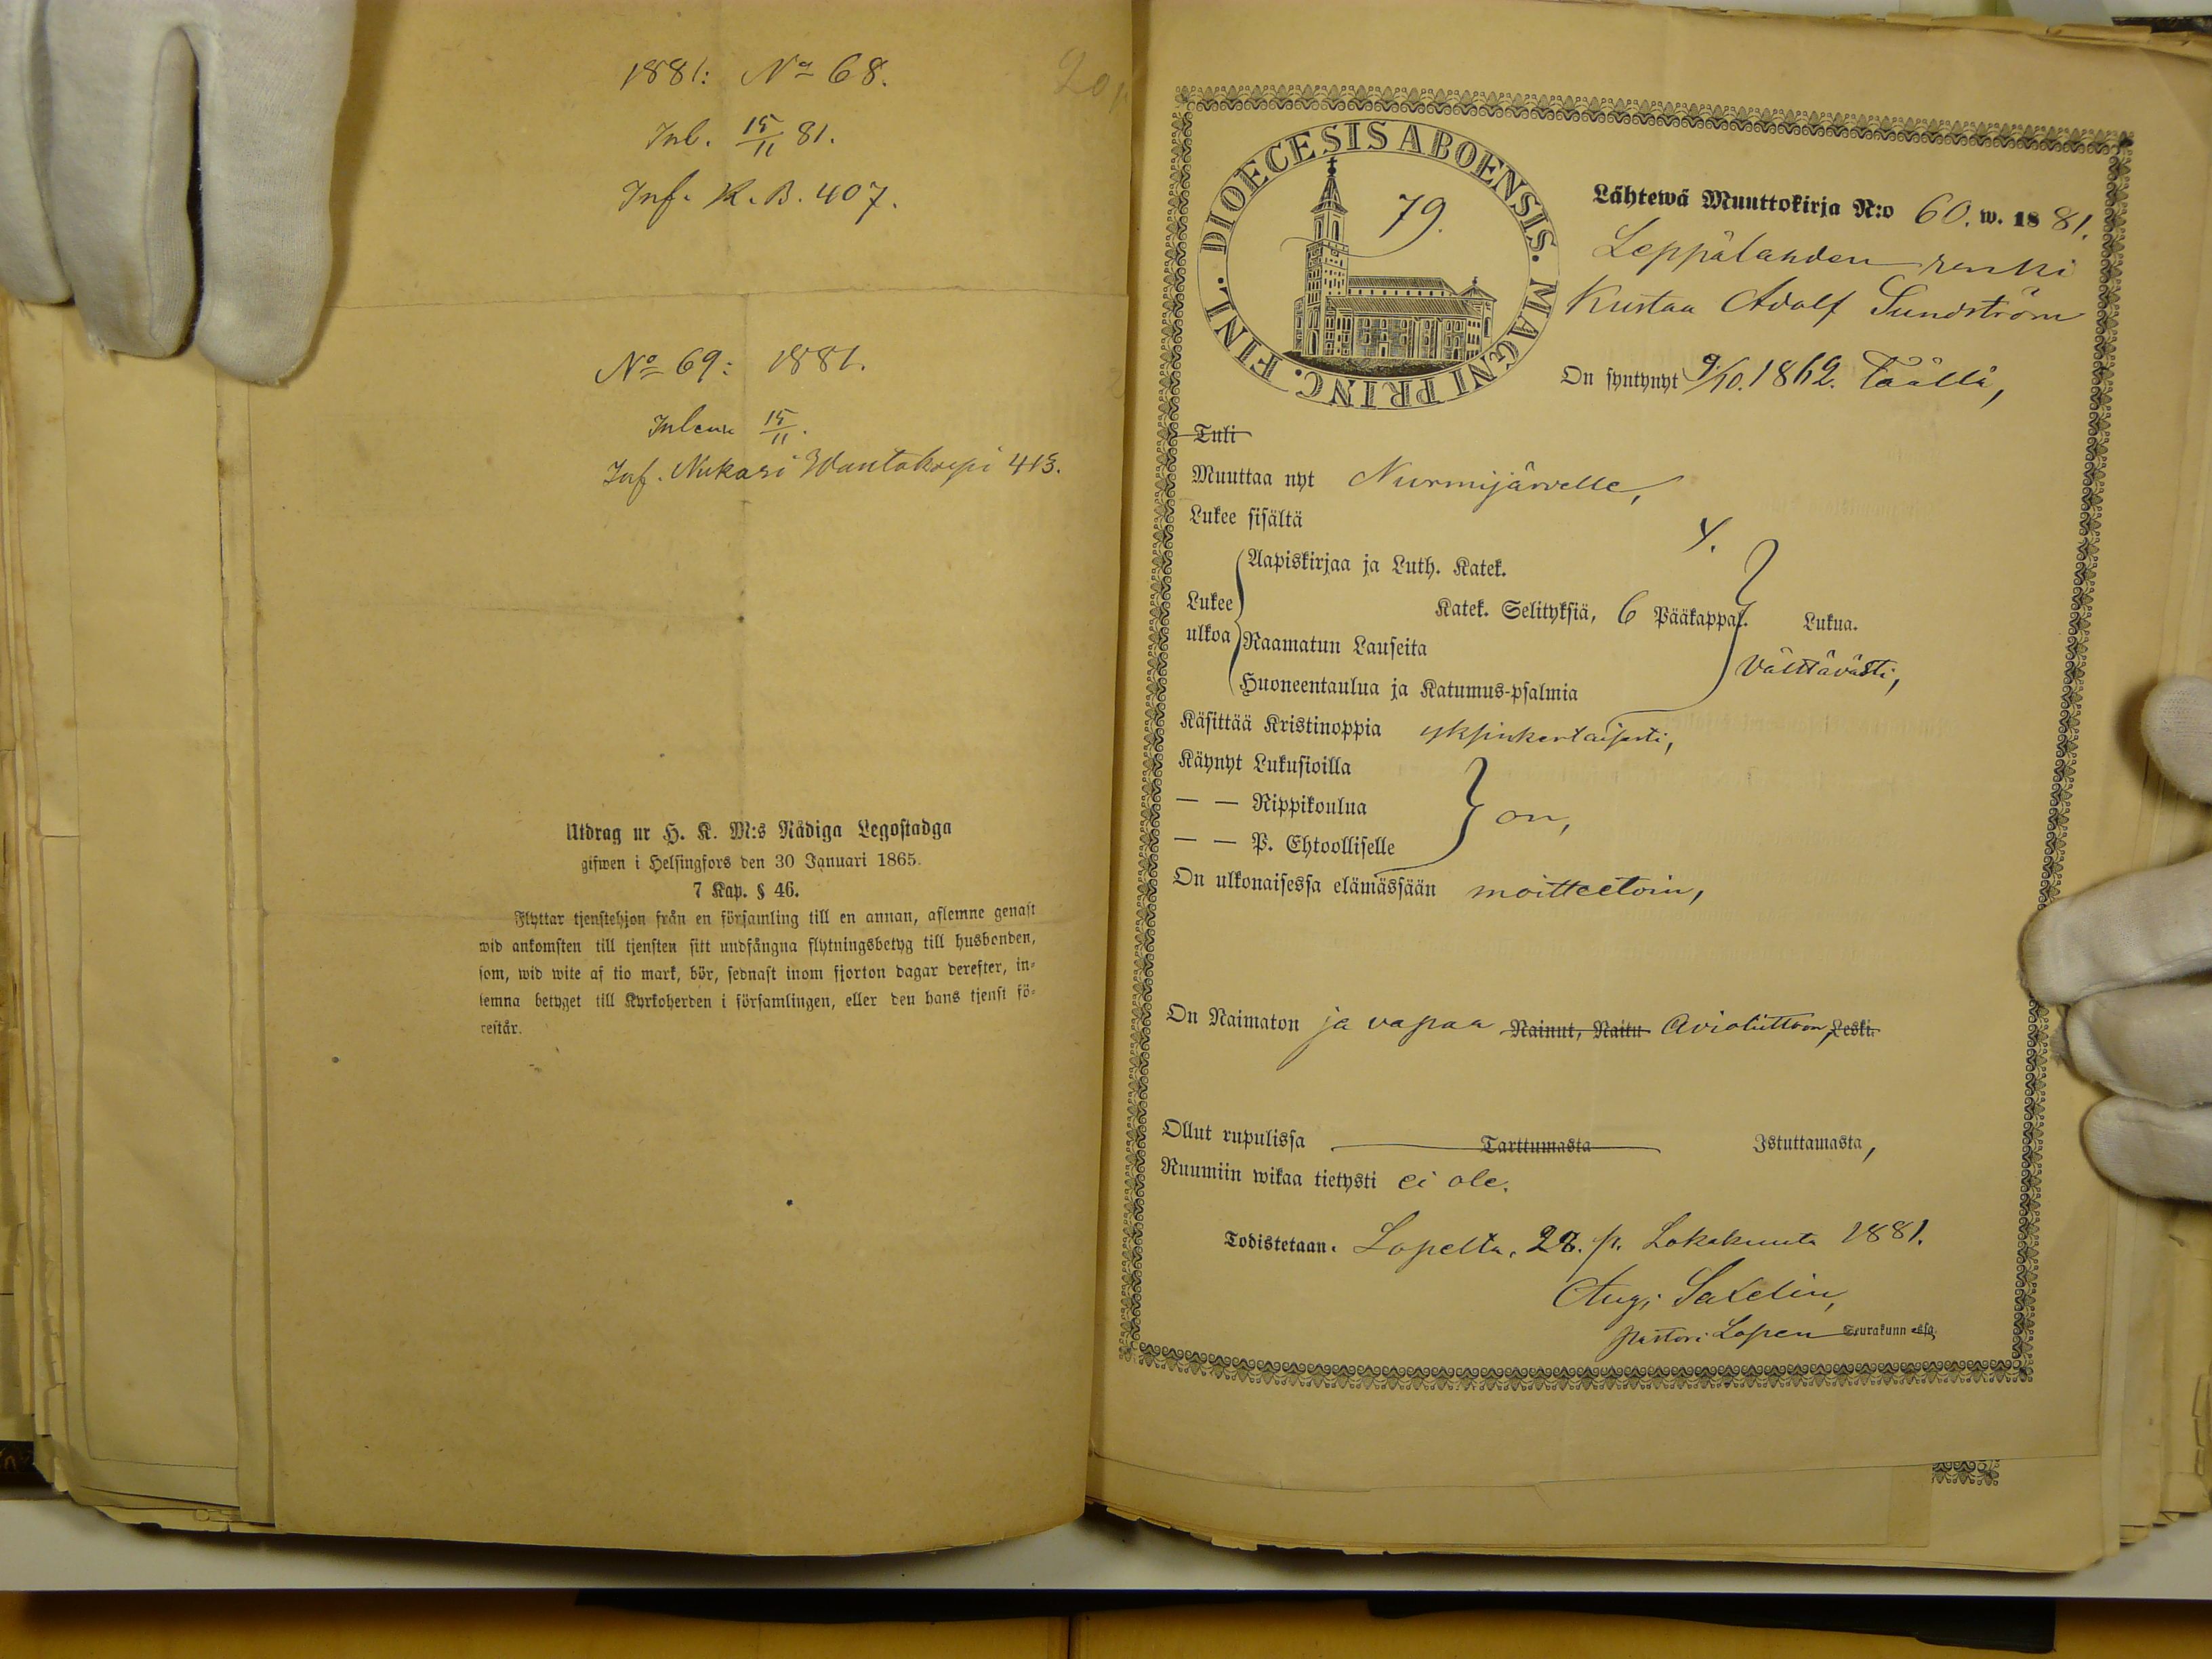 1881: No 68.
Inl. 15/11 81.
Inf. K. B. 407.
No 69: 1881.
Inlemn 15/11.
Inf. Nukari Wantakorpi 413.
Utdrag ur H. K. M:s Nådiga Legostadga
gifwen i Helsingfors den 30 Januari 1865.
7 Kap. § 46.
Flyttar tjenstehjon från en församling till en annan, aflemne genast
wid ankomsten till tjensten sitt undfångna flytningsbetyg till husbonden,
som, wid wite af tio mark, bör, sednast inom fjorton dagar derefter, in-
lemna betyget till Kyrkoherden i församlingen, eller den hans tjenst fö-
restår.
DIOECESIS ABOENSIS. MAGNI PRINC. FINL.
79.
Lähtewä Muuttokirja N:o 60. w. 1881.
Leppälahden renki
Kustaa Adolf Sundström
On syntynyt 9/10. 1862. Täällä,
Tuli
Muuttaa nyt Nurmijärvelle,
Lukee sisältä
Lukee ulkoa
Aapiskirjaa ja Luth. Katek.
Katek. Selityksiä, 6 Pääkappal. Lukua.
Raamatun Lauseita
Välttävästi,
Huoneentaulua ja Katumus-psalmia
Käsittää Kristinoppia yksinkertaisesti,
Käynyt Lukusioilla
— — Rippikoulua
on,
— — P. Ehtoolliselle
On ulkonaisessa elämässään moitteetoin,
On Naimaton ja vapaa Nainut, Naitu Avioliittoon, Leski.
Ollut rupulissa Tarttumasta Istuttamasta,
Ruumiin wikaa tietysti ei ole.
Todistetaan. Lopelta, 28. p. Lokakuuta 1881.
Aug; Salelin,
pastori Lopen Seurakunnassa.